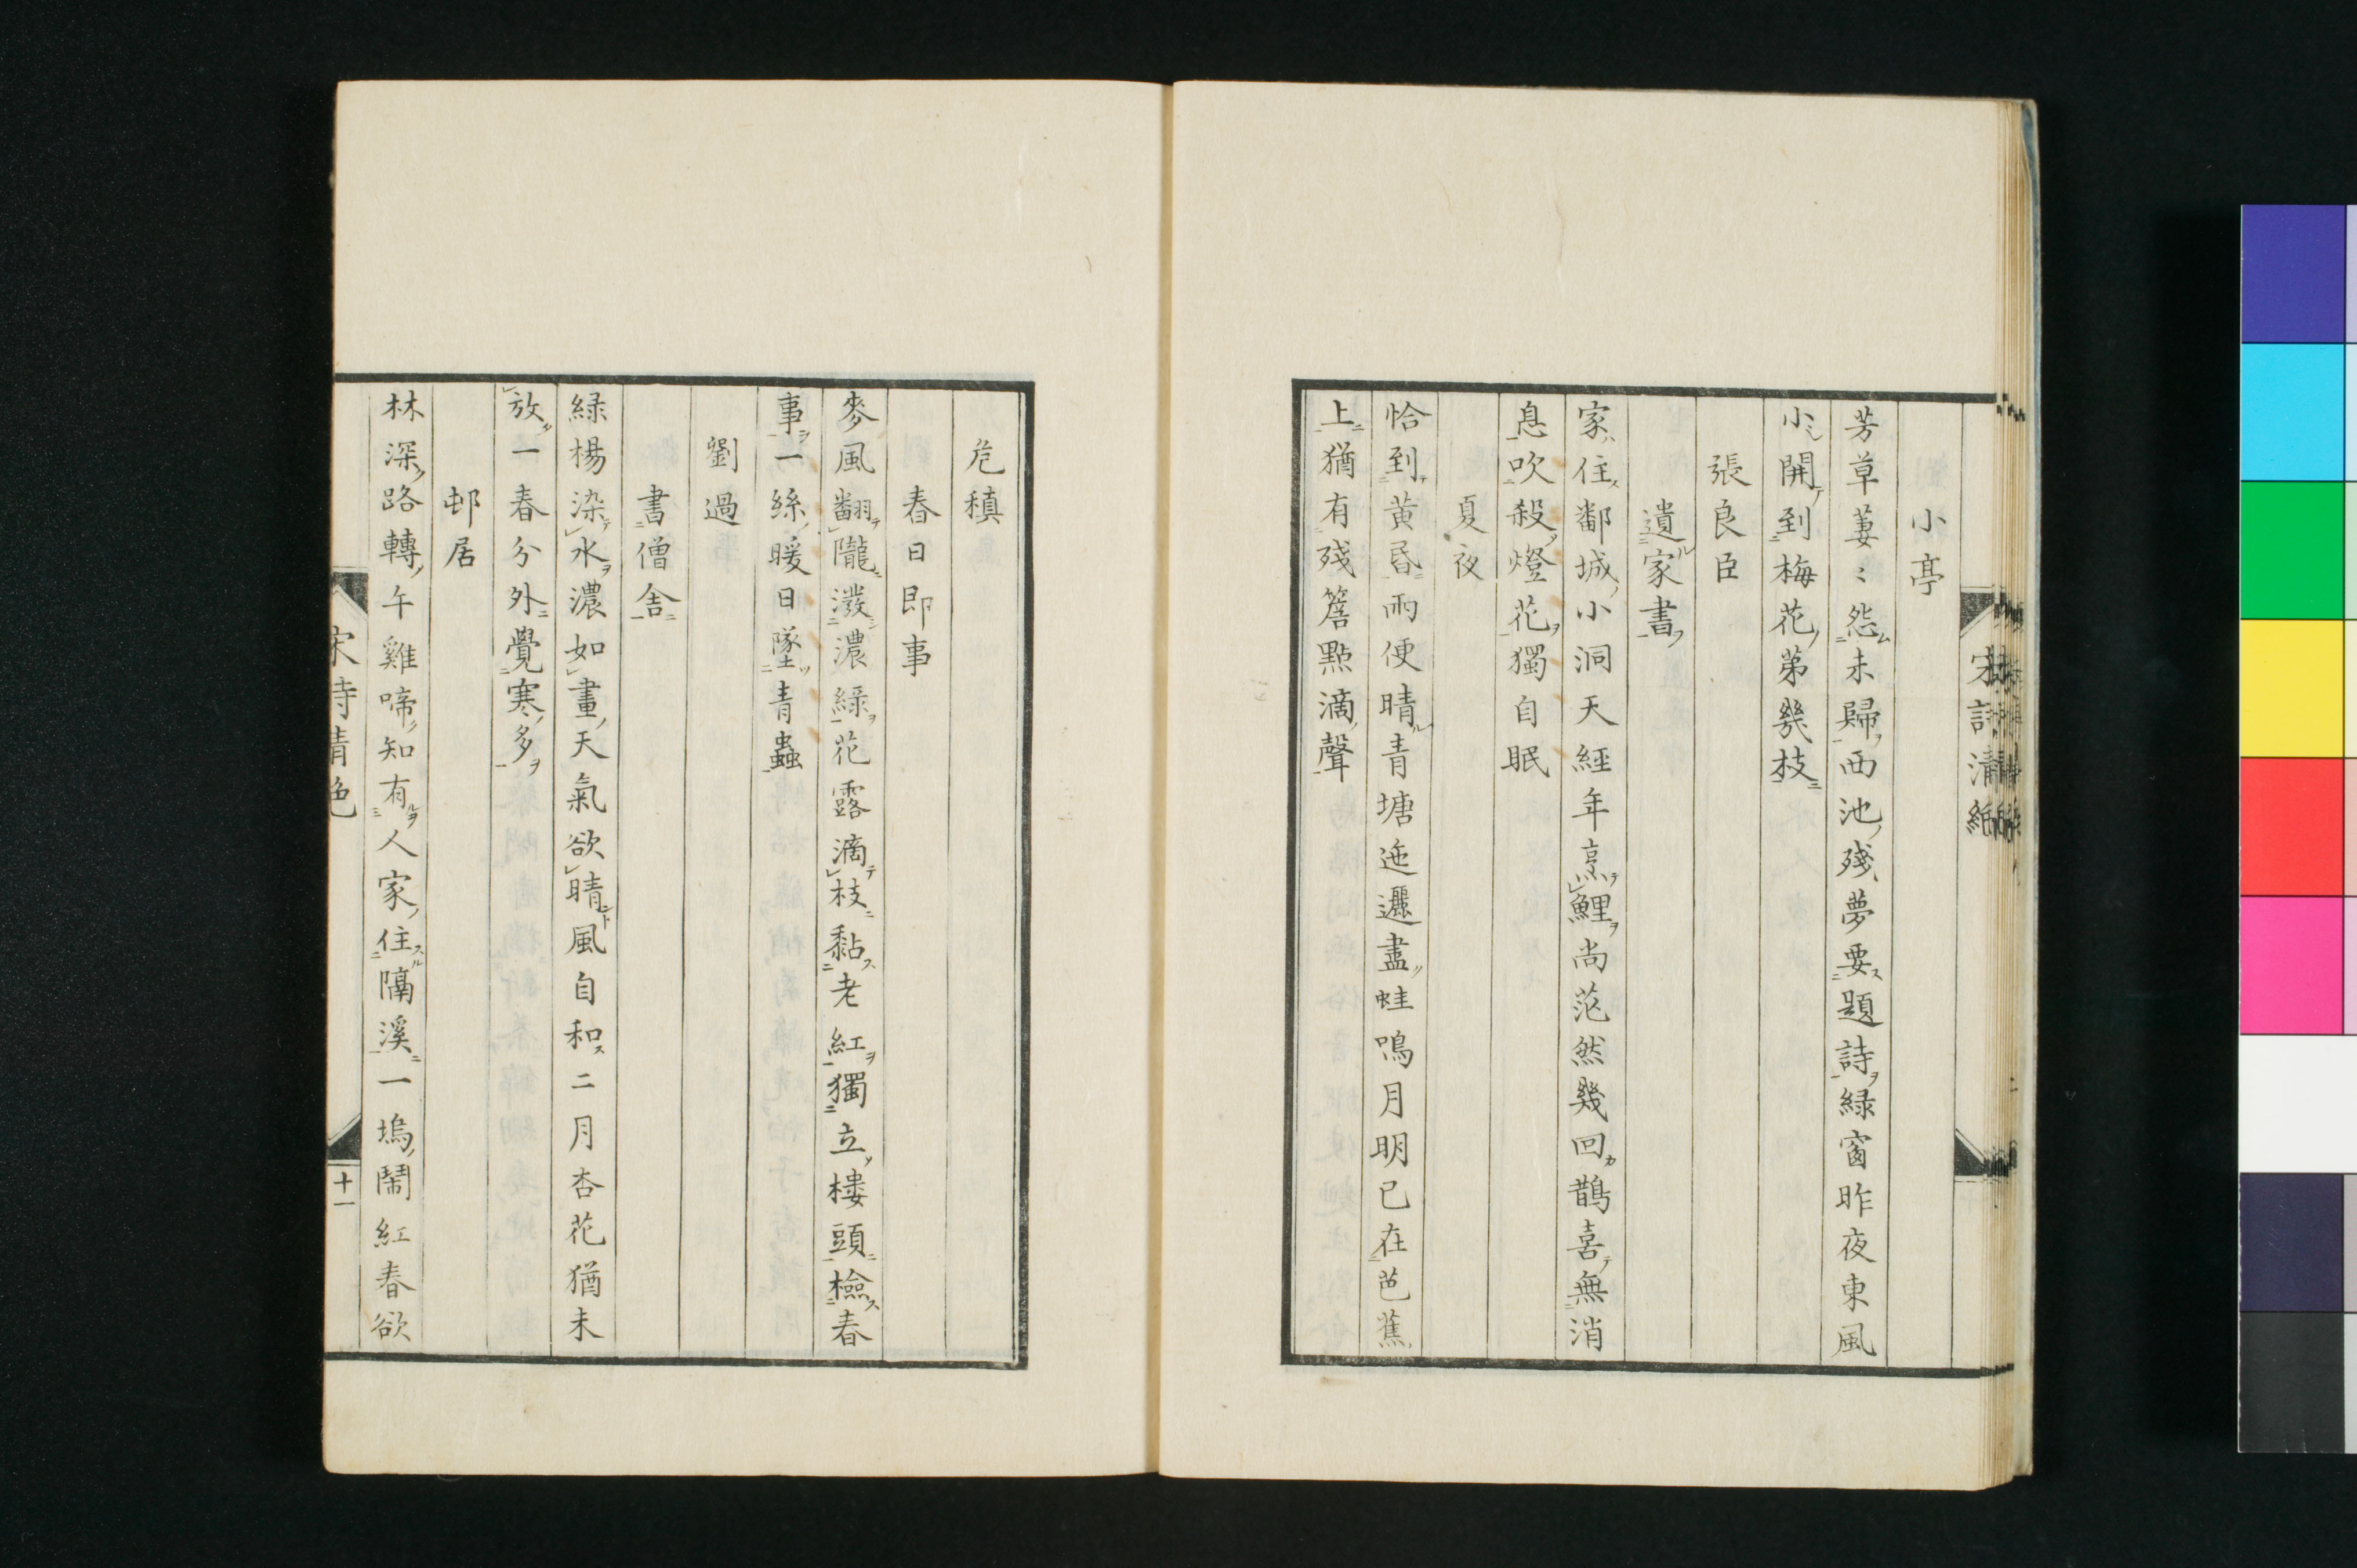 小亭
芳草萋〻怨未歸西池殘夢要題詩綠窗昨夜東風
小開到梅花第幾枝
張良臣
遺家書
家住鄱城小洞天經年烹鯉尚茫然幾回鵲喜無消
息吹殺燈花獨自眠
夏夜
恰到黃昏雨便晴青塘迤邐盡蛙鳴月明已在芭蕉
上猶有殘簷點滴聲
危稹
春日即事
麥風翻隴潑濃綠花露滴枝黏老紅獨立樓頭檢春
事一絲暖日墜青蟲
劉過
書僧舍
綠楊染水濃如畫天氣欲晴風自和二月杏花猶未
放一春分外覺寒多
邨居
林深路轉午雞啼知有人家住隔溪一塢鬧紅春欲
十一